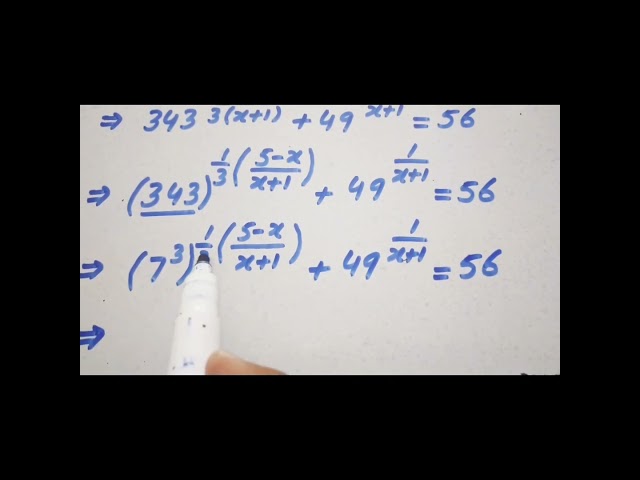 ⇒ 343 3(x+1) + 49 x+1 = 56
⇒ (343)^(1/3 ((5-x)/(x+1))) + 49^(1/(x+1)) = 56
⇒ (7^3)^(1/3 ((5-x)/(x+1))) + 49^(1/(x+1)) = 56
⇒